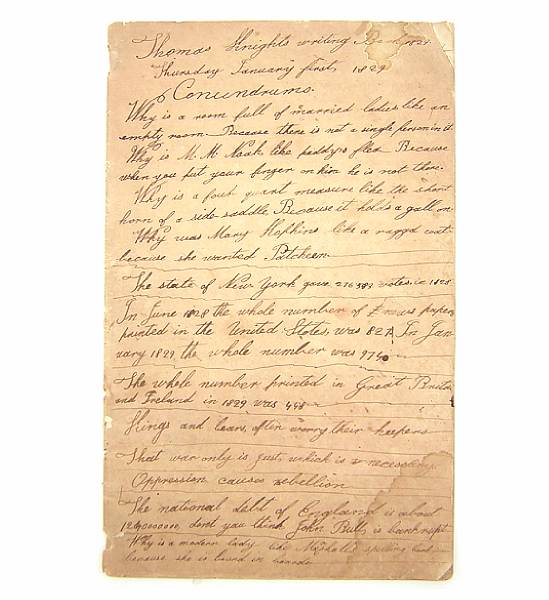 Thomas Knights writing Book
Thursday January first, 1829
Conundrums.
Why is a room full of married ladies like an
empty room. Because there is not a single person in it
Why is M. M. Noah like paddys flea Because
when you put your finger on him he is not there.
Why is a four quart measure like the short
horn of a side saddle, Because it holds a gall on
Why was Mary Hopkins like a ragged coat
because she wanted Patcheen
The state of New York gave 276 583 votes in 1828
In June 1828 the whole number of news papers
printed in the United States, was 827 In Jan
uary 1829 the whole number was
The whole number printed in Great Britain
and Ireland in 1829 was 448
Kings and bears, often worry their keepers
That war only is just, which is necessary.
Oppression causes rebellion
The national debt of England is about
dont you think John Bull, is bankrupt
Why is a modern lady like spelling book
because she is bound in boards